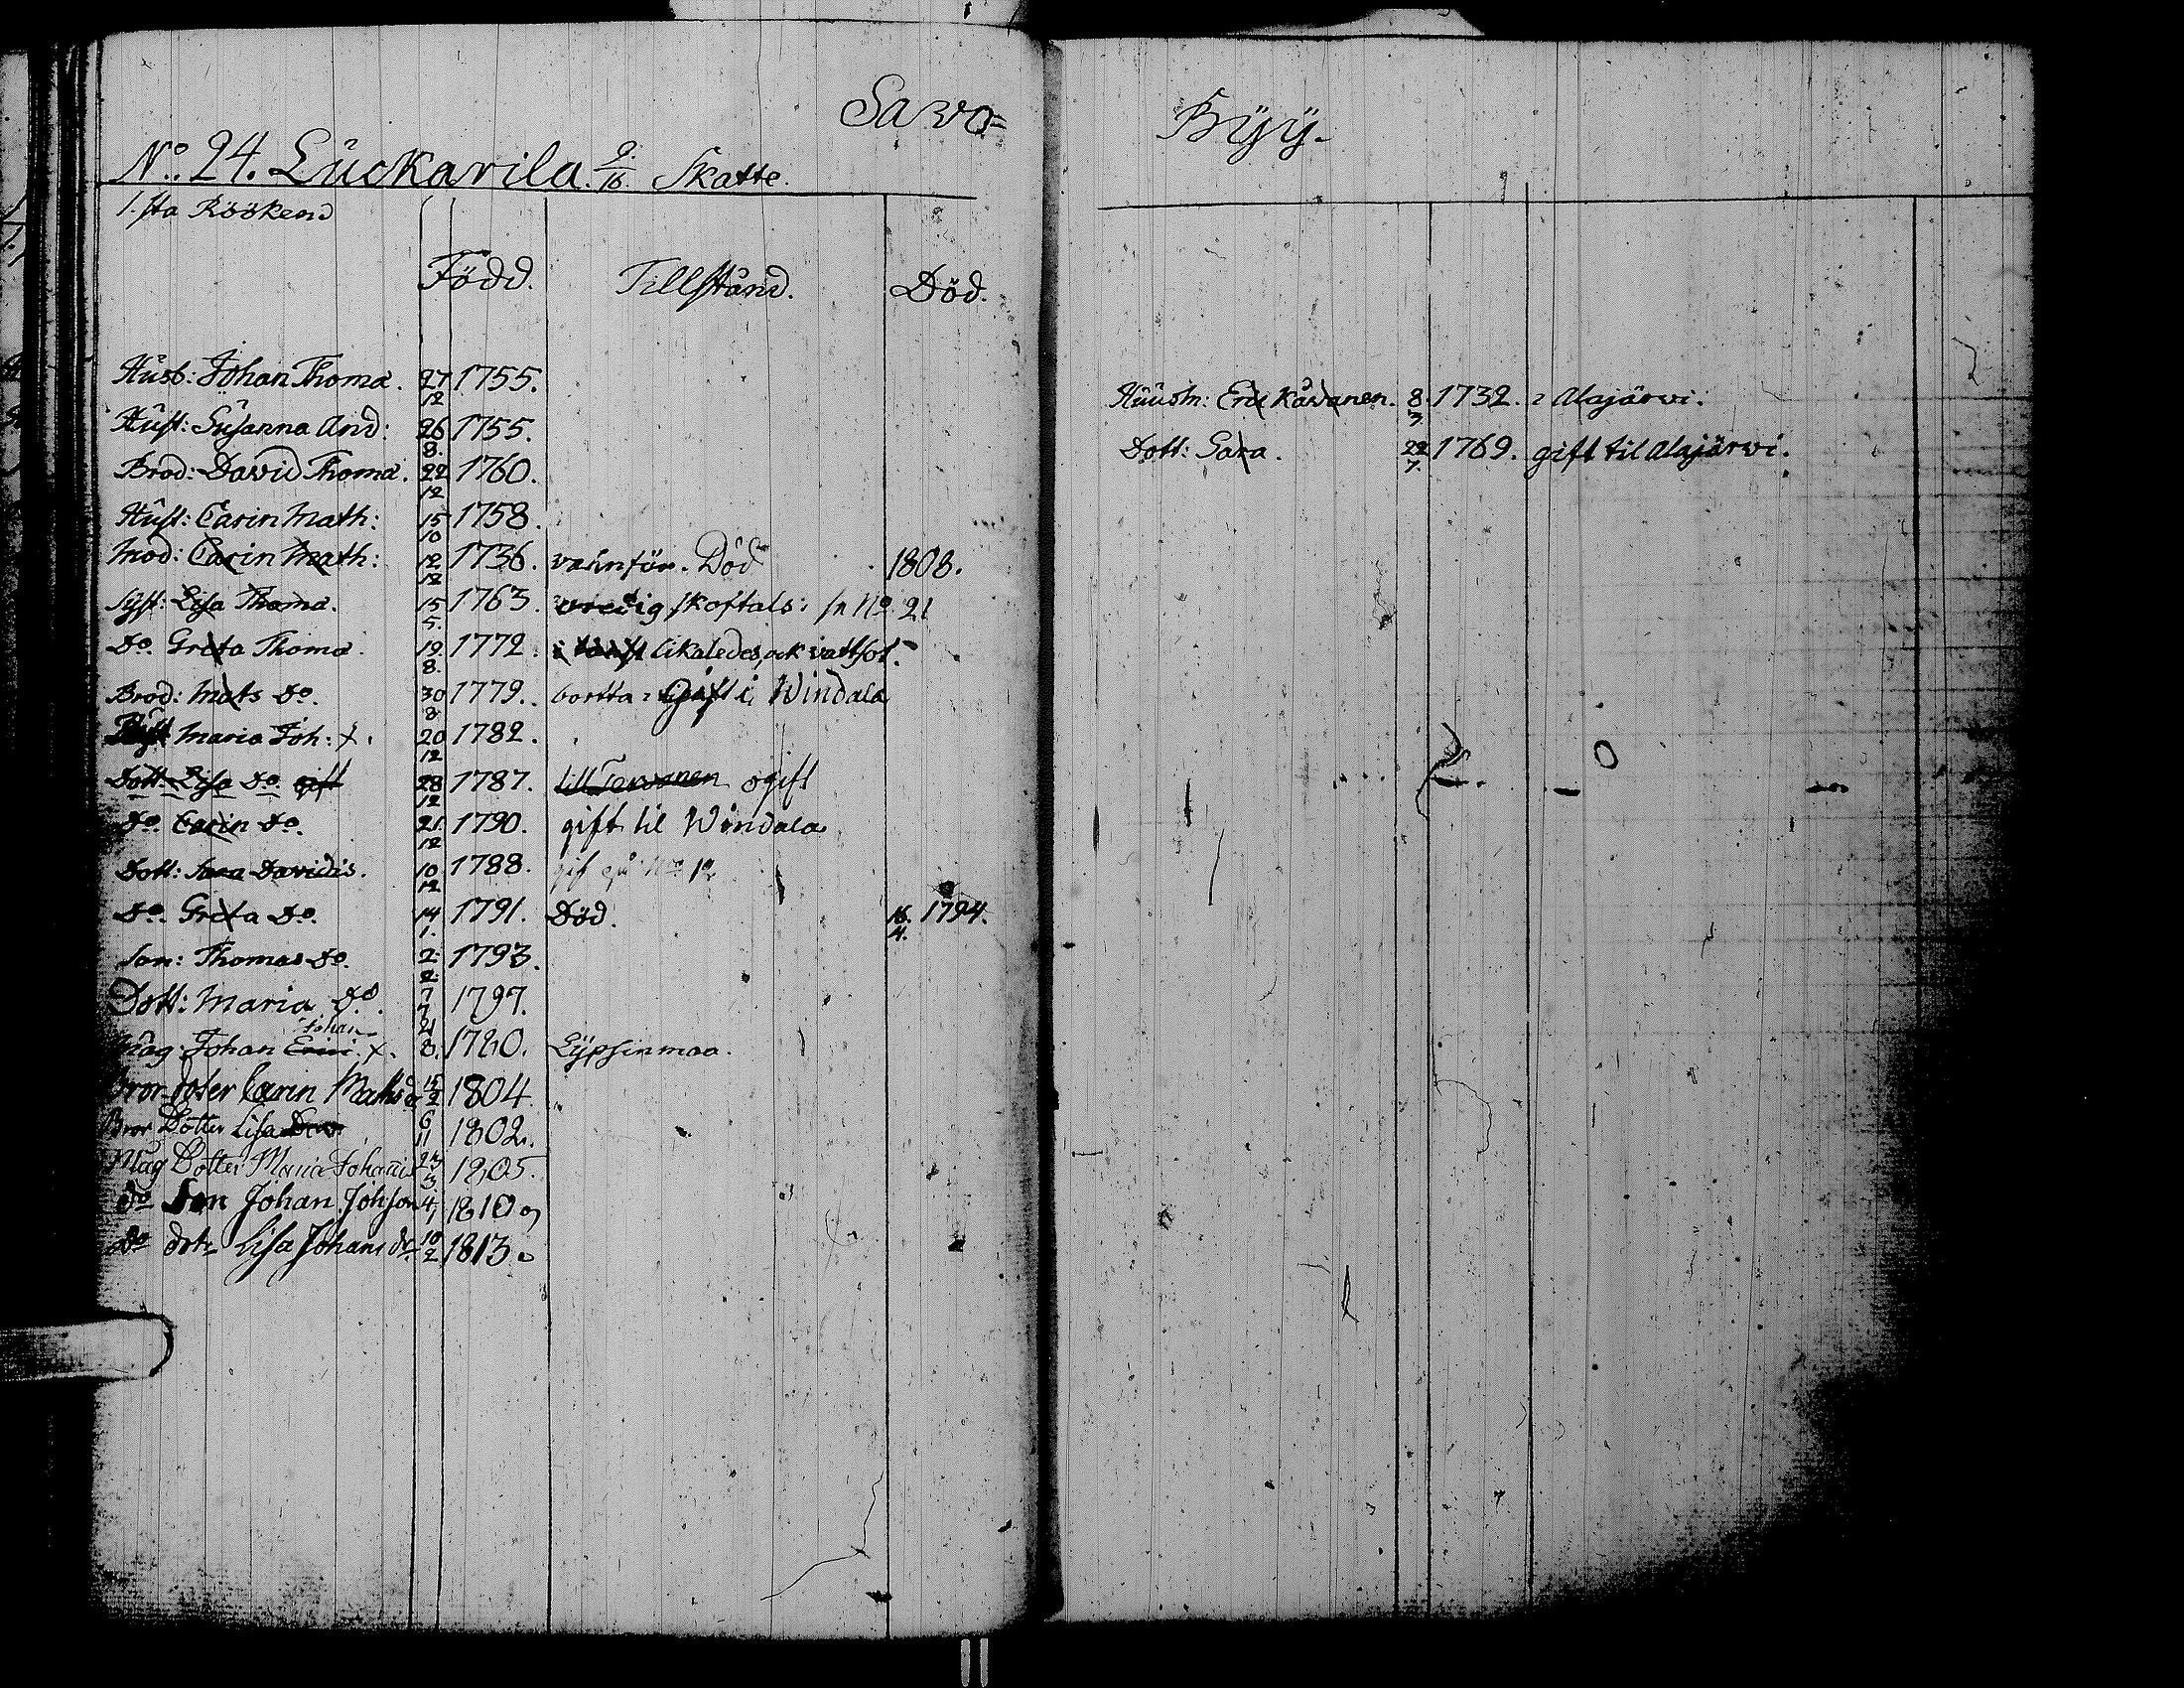 Savo=
No. 24. Luckarila. 9/16 Skatte.
1.sta Röökend
Född. Tillstånd. Död.
Husb: Johan Thomæ. 27/12 1755.
Hust: Susanna And: 26/8. 1755.
Brod: David Thomæ. 22/12 1760.
Hust: Carin Math: 15/10 1758.
Mod: Carin Math: 12/12 1736. vanför. Död 1808.
Syst: Lisa Thomæ. 15/5. 1763. skoftals: No 21
Do. Greta Thomæ. 19/8. 1772. likaledes, ock vattsot.
Brod: Mats Do. 30/8 1779. bortta Gift i Windala
Maria Joh: +. 20/12 1782.
Dott: Lisa Do gift 28/12 1787. till ogift
Do. Carin Do. 21/12 1790. gift til Windala
Dott: Sara Davidis. 10/12 1788.
Do. Greta Do. 14/1. 1791. Död. 16./4. 1794.
Son: Thomas Do. 2/2 1793.
Dott: Maria Do. 7/7 1797.
Johan
Måg: Johan Erici. +. 21/8. 1780. Lypsinmaa.
Bror doter Carin Mathsd 15/2 1804
Bror Dotter Lisa 6/11 1802.
Måg Dotter Maria Johanis 23/3 1805.
do Son Johan Johson 4/1 1810
do dotr Lisa Johans dr 10/2 1813
Byy.
Huusm: Eric Kåvanen. 8/3. 1732. Alajärvi.
Dott: Sara. 22/7. 1769. gift til Alajärvi.